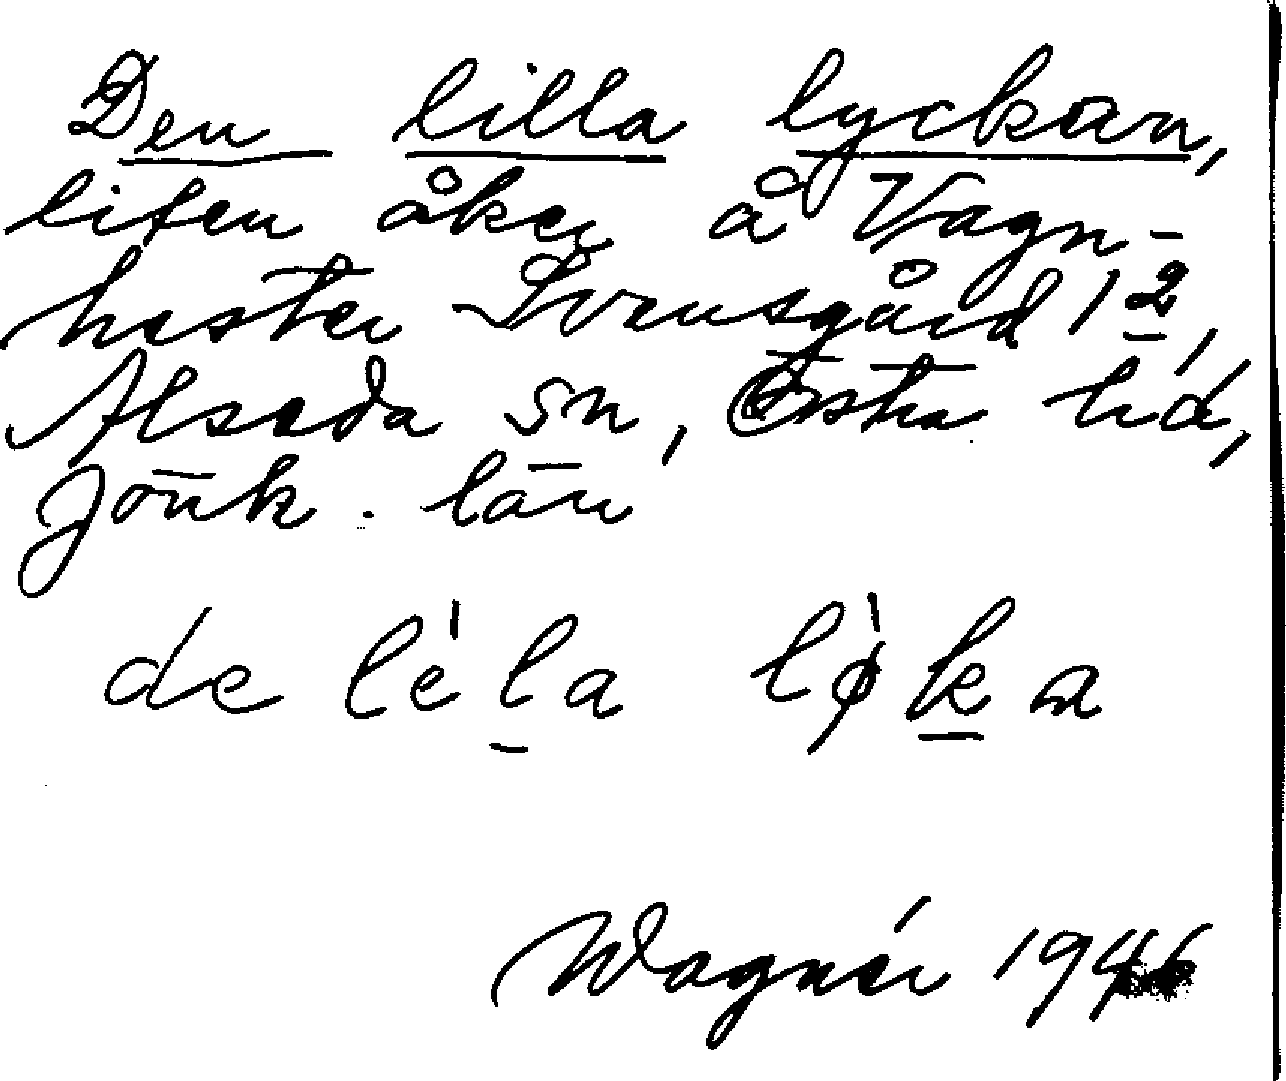 Den lilla lyckan,
liten åker å Vagn-
hester Svensgård 1 2,
Alseda sn, Östra hd,
Jönk. län
de lèla lø̀ka
Wagnér 1946